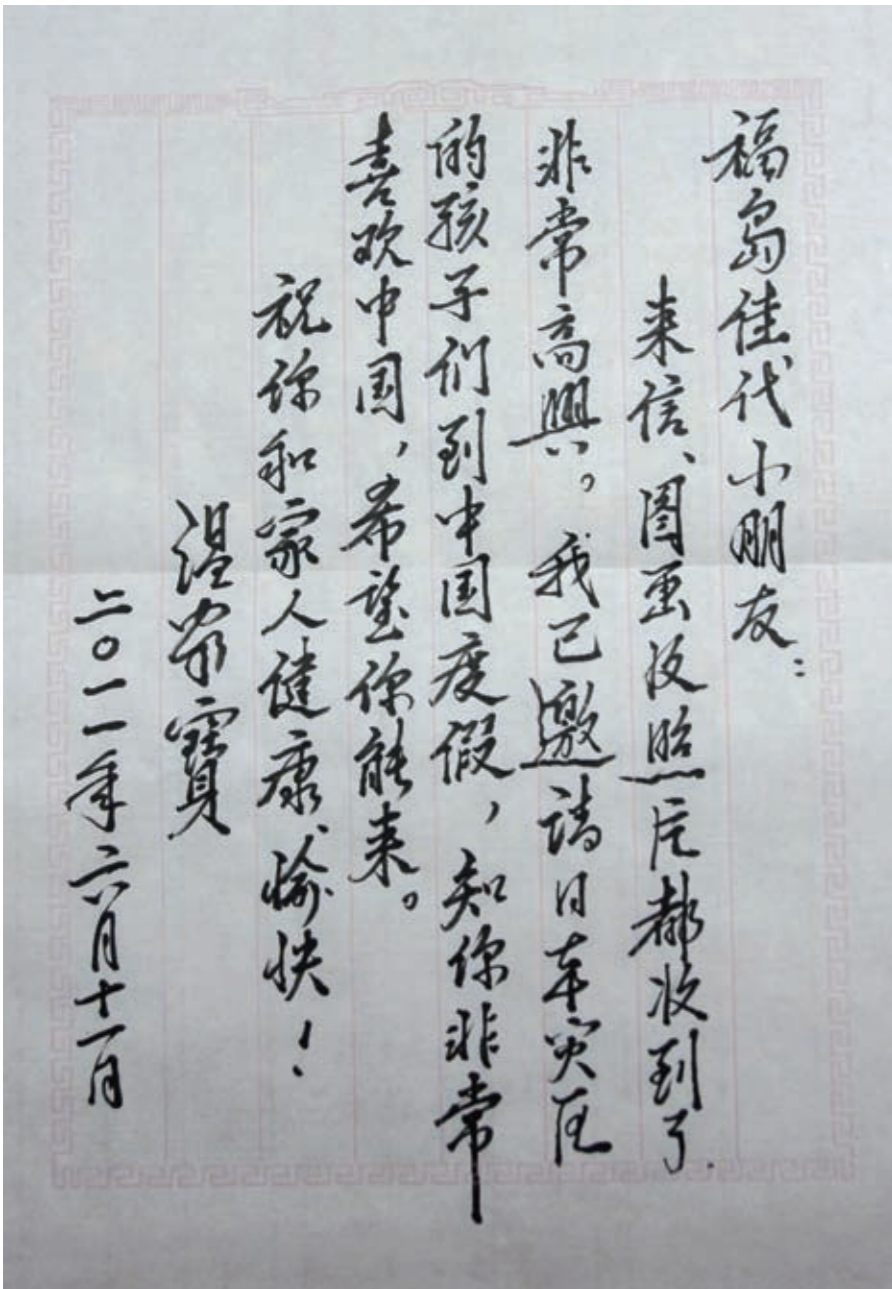 福島佳代小朋友：
来信、图画及照片都收到了
非常高興。我已邀请日本灾区
的孩子们到中国度假，知你非常
喜欢中国，希望你能来。
祝你和家人健康、愉快！
温家寶
二〇一一年六月十一日